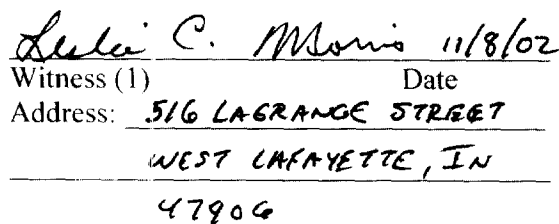 Leslie C. Morris 11/8/02
Witness (1) Date
Address: 516 LAGRANGE STREET
WEST LAFAYETTE, IN
47906